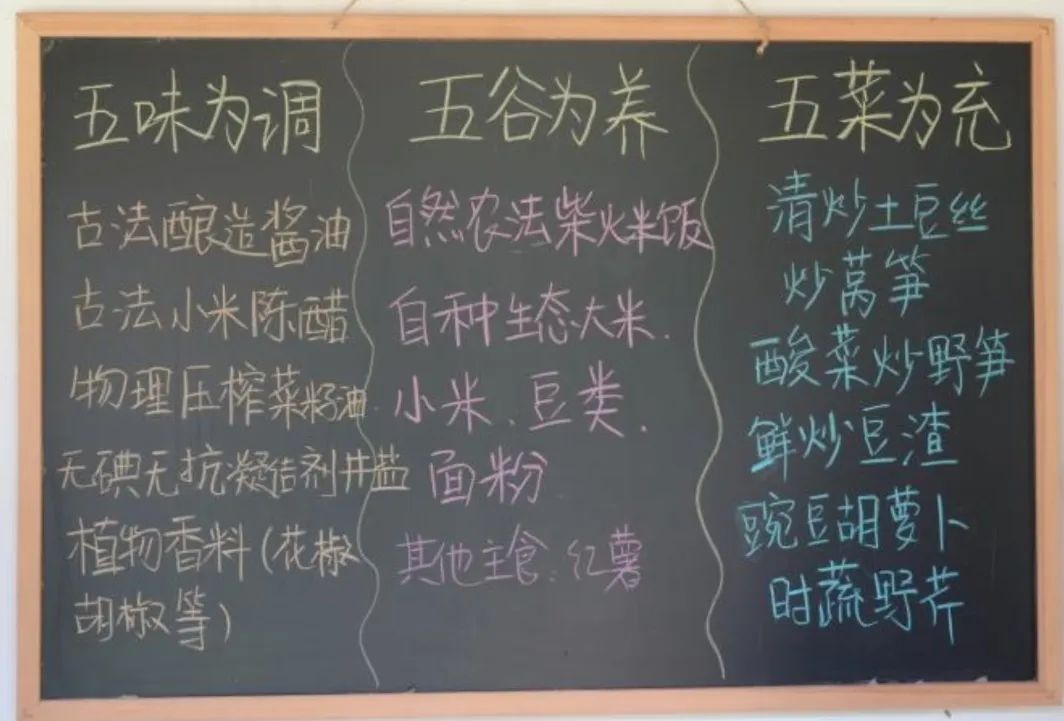 五味为调
古法酿造酱油
古法小米陈醋
物理压榨菜籽油
无碘无抗凝结剂井盐
植物香料(花椒
胡椒等)
五谷为养
自然农法柴火米饭
自种生态大米.
小米、豆类.
面粉
其他主食:红薯
五菜为充
清炒土豆丝
炒莴笋
酸菜炒野笋
鲜炒豆渣
豌豆胡萝卜
时蔬野芹